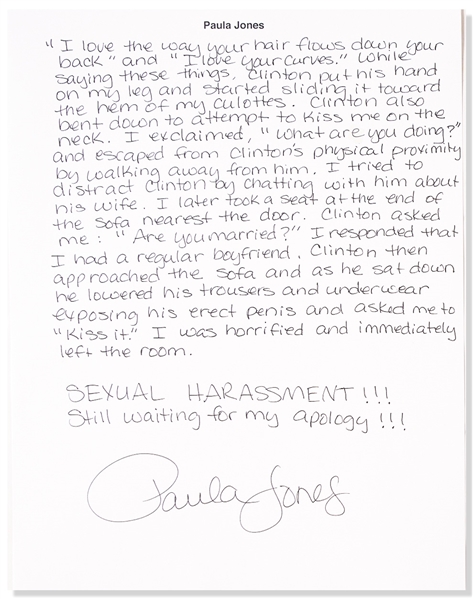 Paula Jones
"I love the way your hair flows down your
back" and "I love your curves." While
saying these things, Clinton put his hand
on my leg and started sliding it toward
the hem of my culottes. Clinton also
bent down to attempt to kiss me on the
neck. I exclaimed, "What are you doing?"
and escaped from Clinton's physical proximity
by walking away from him. I tried to
distract Clinton by chatting with him about
his wife. I later took a seat at the end of
the sofa nearest the door. Clinton asked
me: "Are you married?" I responded that
I had a regular boyfriend. Clinton then
approached the sofa and as he sat down
he lowered his trousers and underwear
exposing his erect penis and asked me to
"Kiss it." I was horrified and immediately
left the room.
SEXUAL HARASSMENT!!!
Still waiting for my apology!!!
Paula Jones